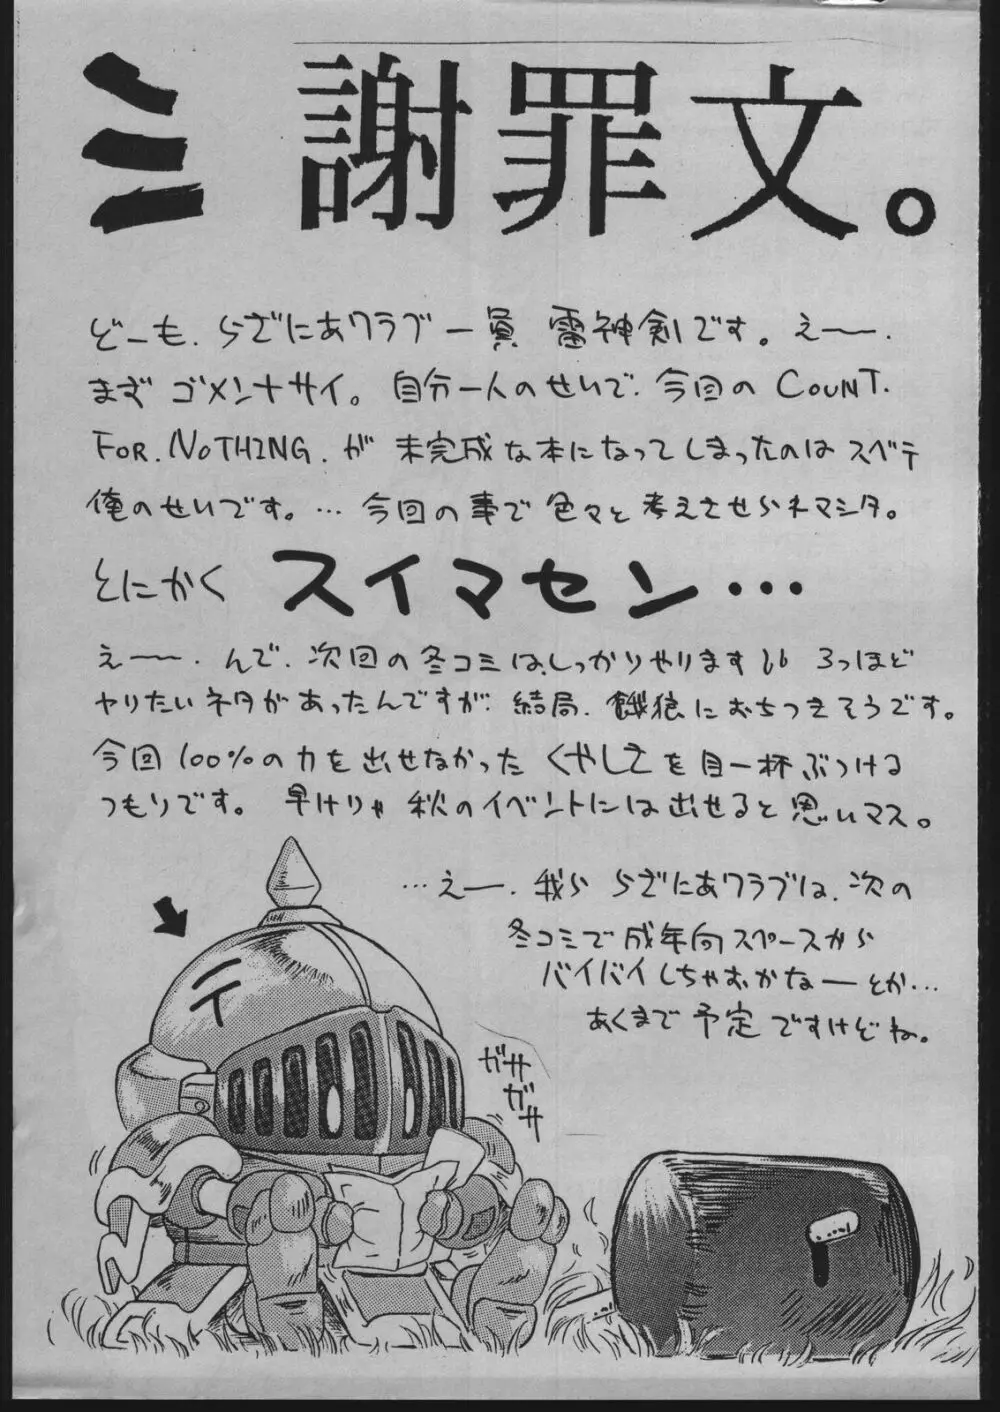 ミ 謝罪文。
どーも、らざにあクラブ一員 雷神剣です。えー、
まず ゴメンナサイ。自分一人のせいで、今回の COUNT.
FOR.NOTHING.が 未完成な本になってしまったのは スベテ
俺のせいです。… 今回の事で色々と 考えさせらレマシタ。
とにかく スイマセン…
えー、んで、次回の冬コミは、しっかりやりますい 3つほど
ヤリたいネタがあったんですが、結局、餓狼におちつきそうです。
今回 100%の力を出せなかった くやしさを目一杯ぶつける
つもりです。早けりゃ 秋のイベントには出せると思いマス。
…えー、我ら らざにあクラブは、次の
冬コミで 成年向スペースから
バイバイしちゃおかなーとか…
あくまで 予定ですけどね。
ガサ
ガサ